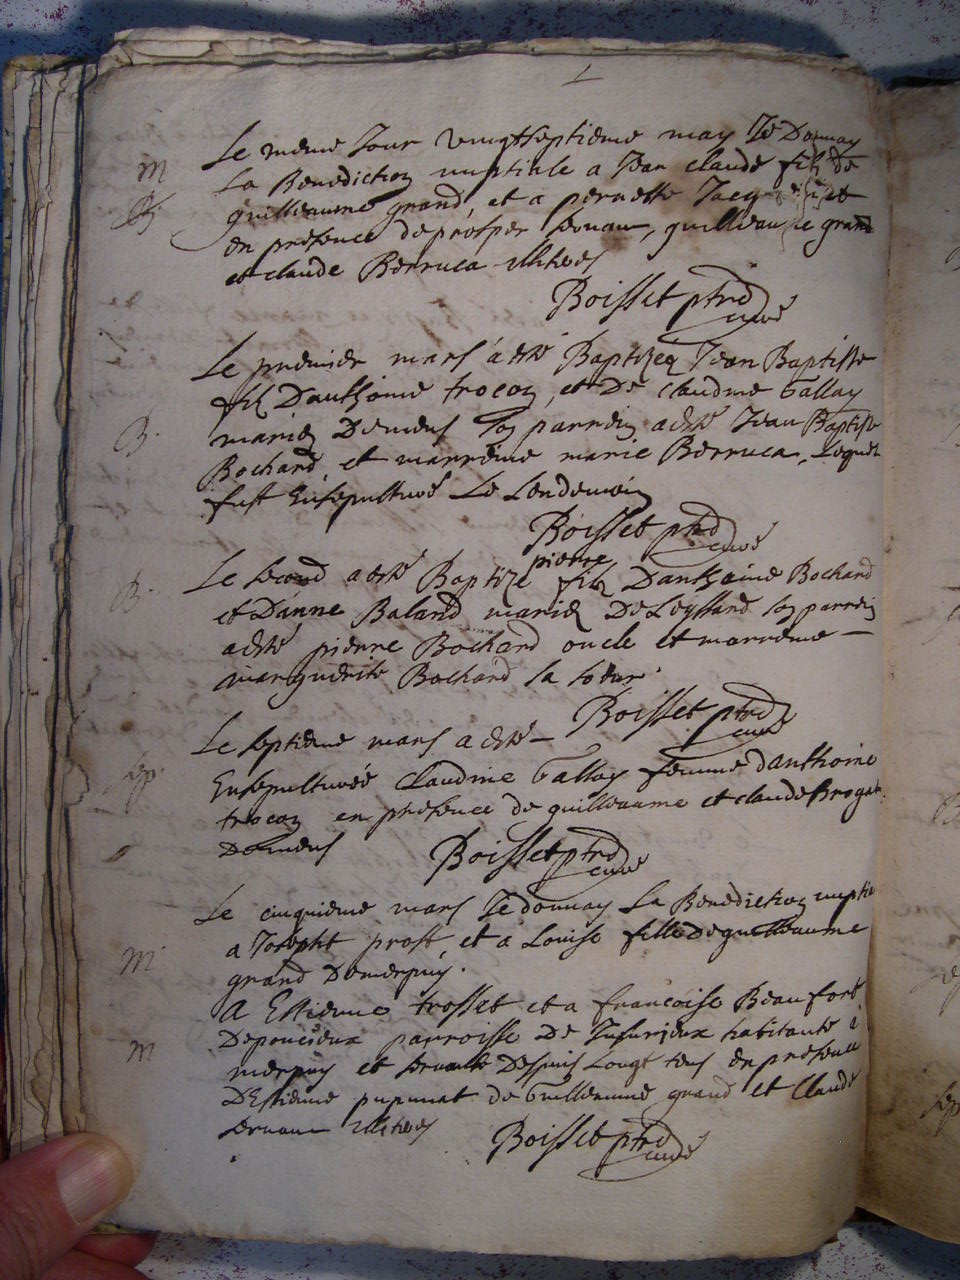 Le meme Jour vingtseptieme may Je Donnay
M
La Benediction nuptiale a Jean claude fils de
B
guilleaume grand, et a pernette Jacq
en presence de prosper servan, guilleaume grand
et claude Berruca illiteres
Boisset ptre
curé
Le premier mars a esté Baptizez Jean Baptiste
fils Danthoine trocon, et De claudine Gallay
B.
mariez Demens son parrein a esté Jean Baptiste
Bochard et marreine marie Berruca, Lequel
fust Ensepulturé Le Lendemain
Boisset ptre
curé
pierre
Le second a esté Baptize fils Danthoine Bochard
B.
et Danne Baland mariez De Leyssard son parrein
a esté pierre Bochard oncle et marreine
marguerite Bochard sa soeur
Boisset ptre
curé
Le septieme mars a esté
sep.
Ensepulturéé Claudine Gallay femme danthoine
trocon en presence de guilleaume et claude Brogat
Demens
Boisset ptre
curé
Le cinquieme mars Je donnay La Benediction nuptia
M
a Joseph prost et a Louise fille De guilleaume
grand Demerpuis.
M
A Estienne trosset et a francoise Beaufort
De poncieux parroisse De Jusurieux habitante a
merpuis et servante Despuis Longt tems en presence
DEstienne pupunat de Guilleaume grand et Claude
servan illiteres
Boisset ptre
curé